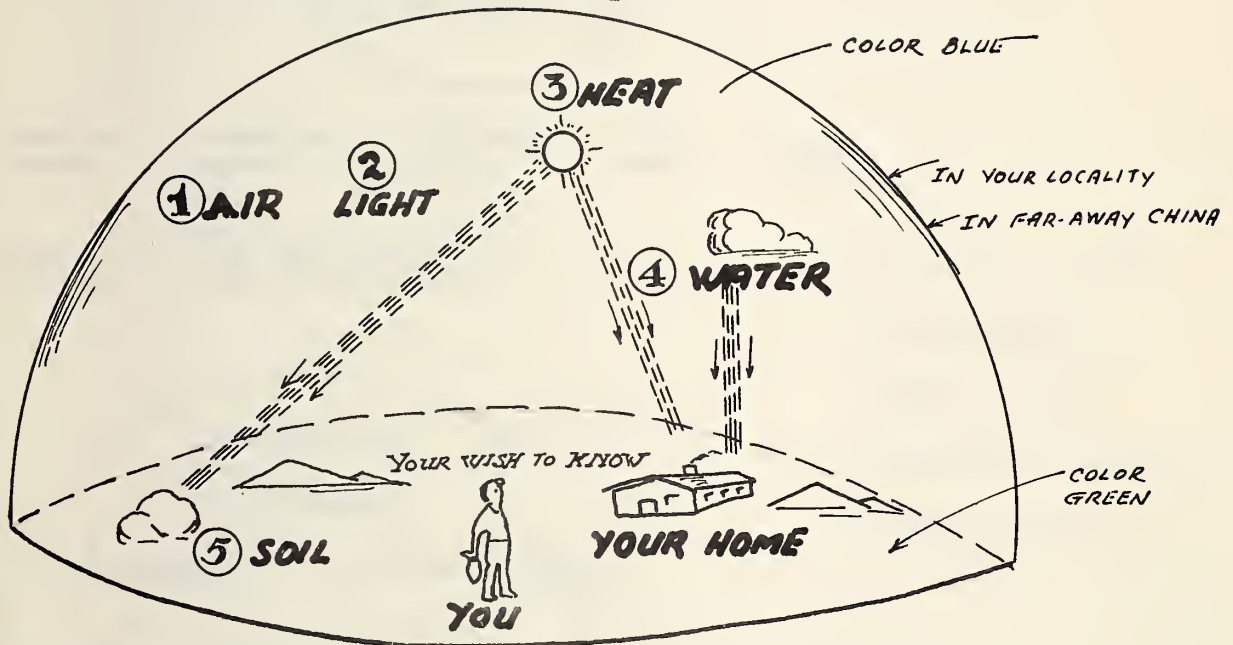 COLOR BLUE
③ HEAT
② LIGHT
① AIR
IN YOUR LOCALITY
IN FAR-AWAY CHINA
④ WATER
YOUR WISH TO KNOW
COLOR
GREEN
YOUR HOME
⑤ SOIL
YOU